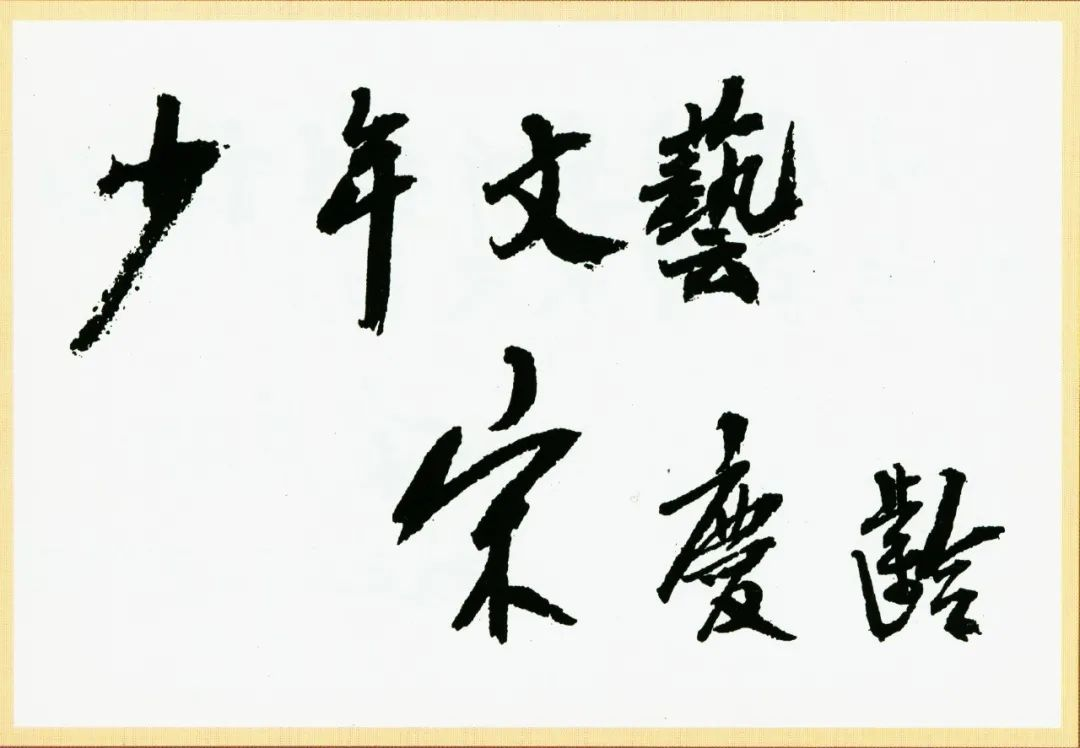 少年文藝
宋慶齡